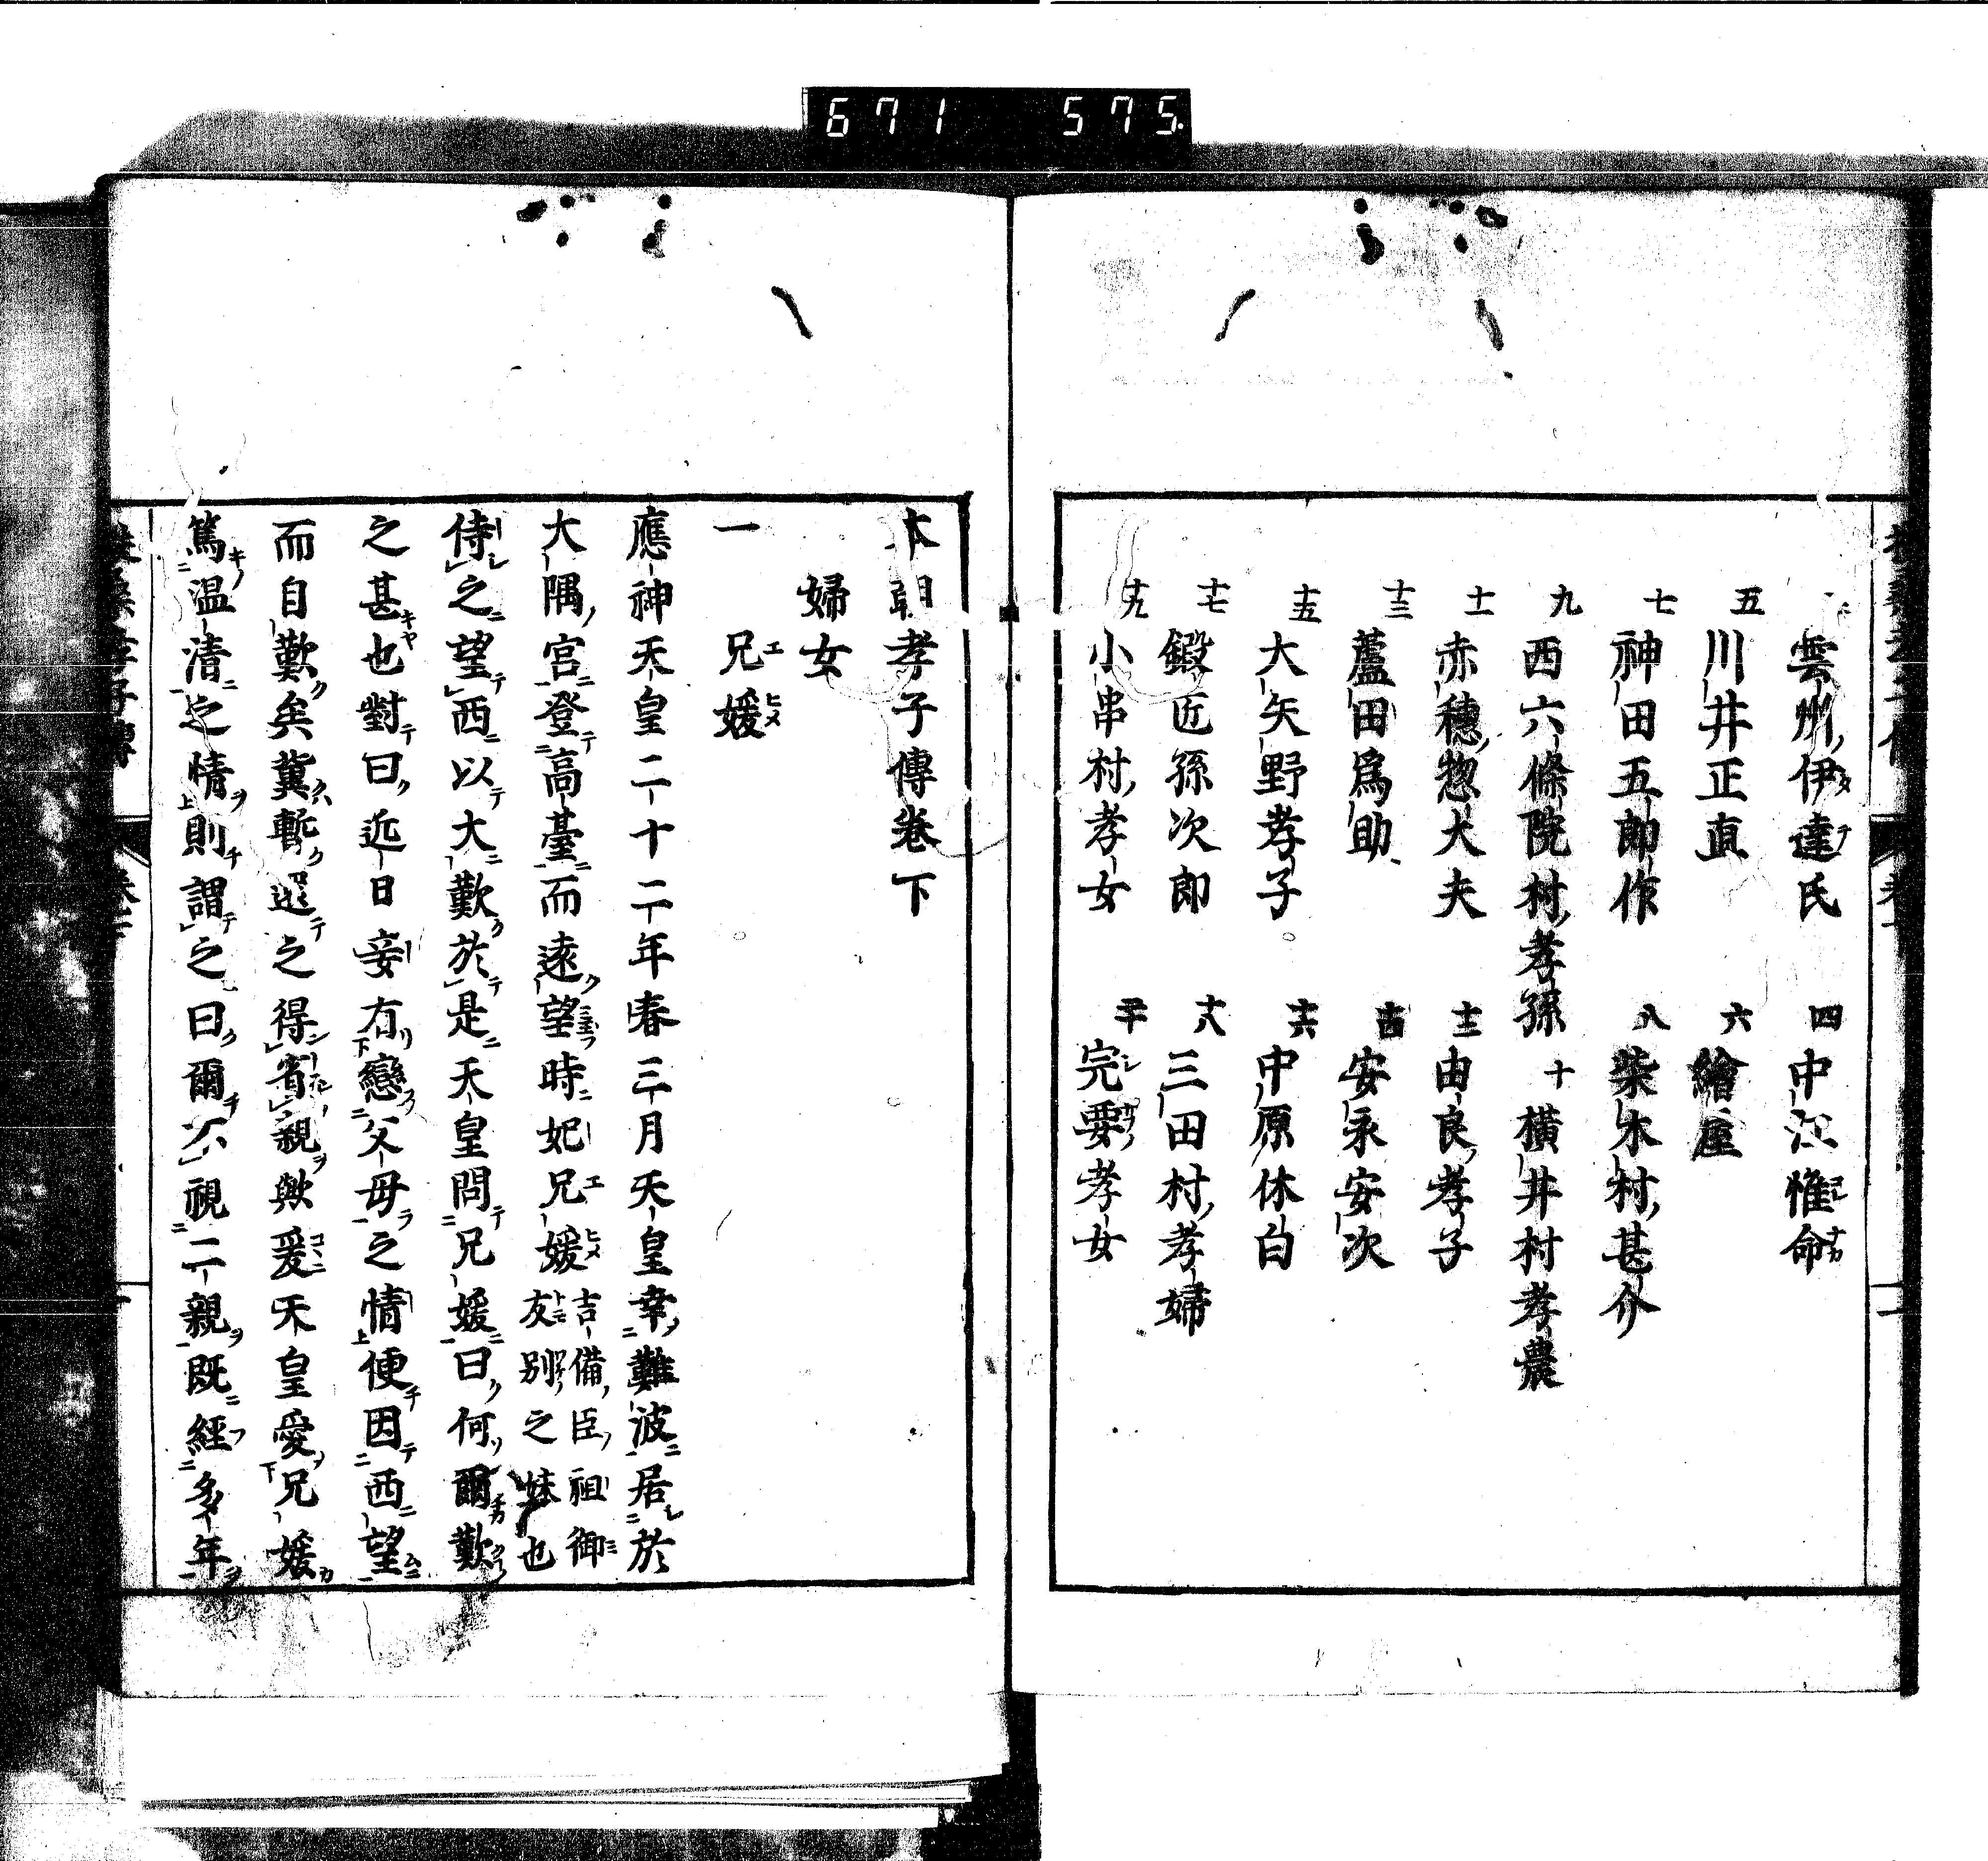 671 575
雲州伊達氏 四 中江惟命
五 川井正直 六 繪屋
七 神田五郎作 八 柴木村甚介
九 西六條院村孝孫 十 橫井村孝農
十一 赤穗惣大夫 十二 由良孝子
十三 蘆田爲助 十四 安永安次
十五 大矢野孝子 十六 中原休白
十七 鍛匠孫次郎 十八 三田村孝婦
十九 小串村孝女 二十 完要孝女
本朝孝子傳卷下
婦女
一 兄媛
應神天皇二十二年春三月天皇幸難波居於
大隅宮登高臺而遠望時妃兄媛吉備臣祖御友別之妹也
侍之望西以大歎於是天皇問兄媛曰何爾歎
之甚也對曰近日妾有戀父母之情便因西望
而自歎矣冀暫還之得省親歟爰天皇愛兄媛
篤溫凊之情則謂之曰爾不視二親既經多年